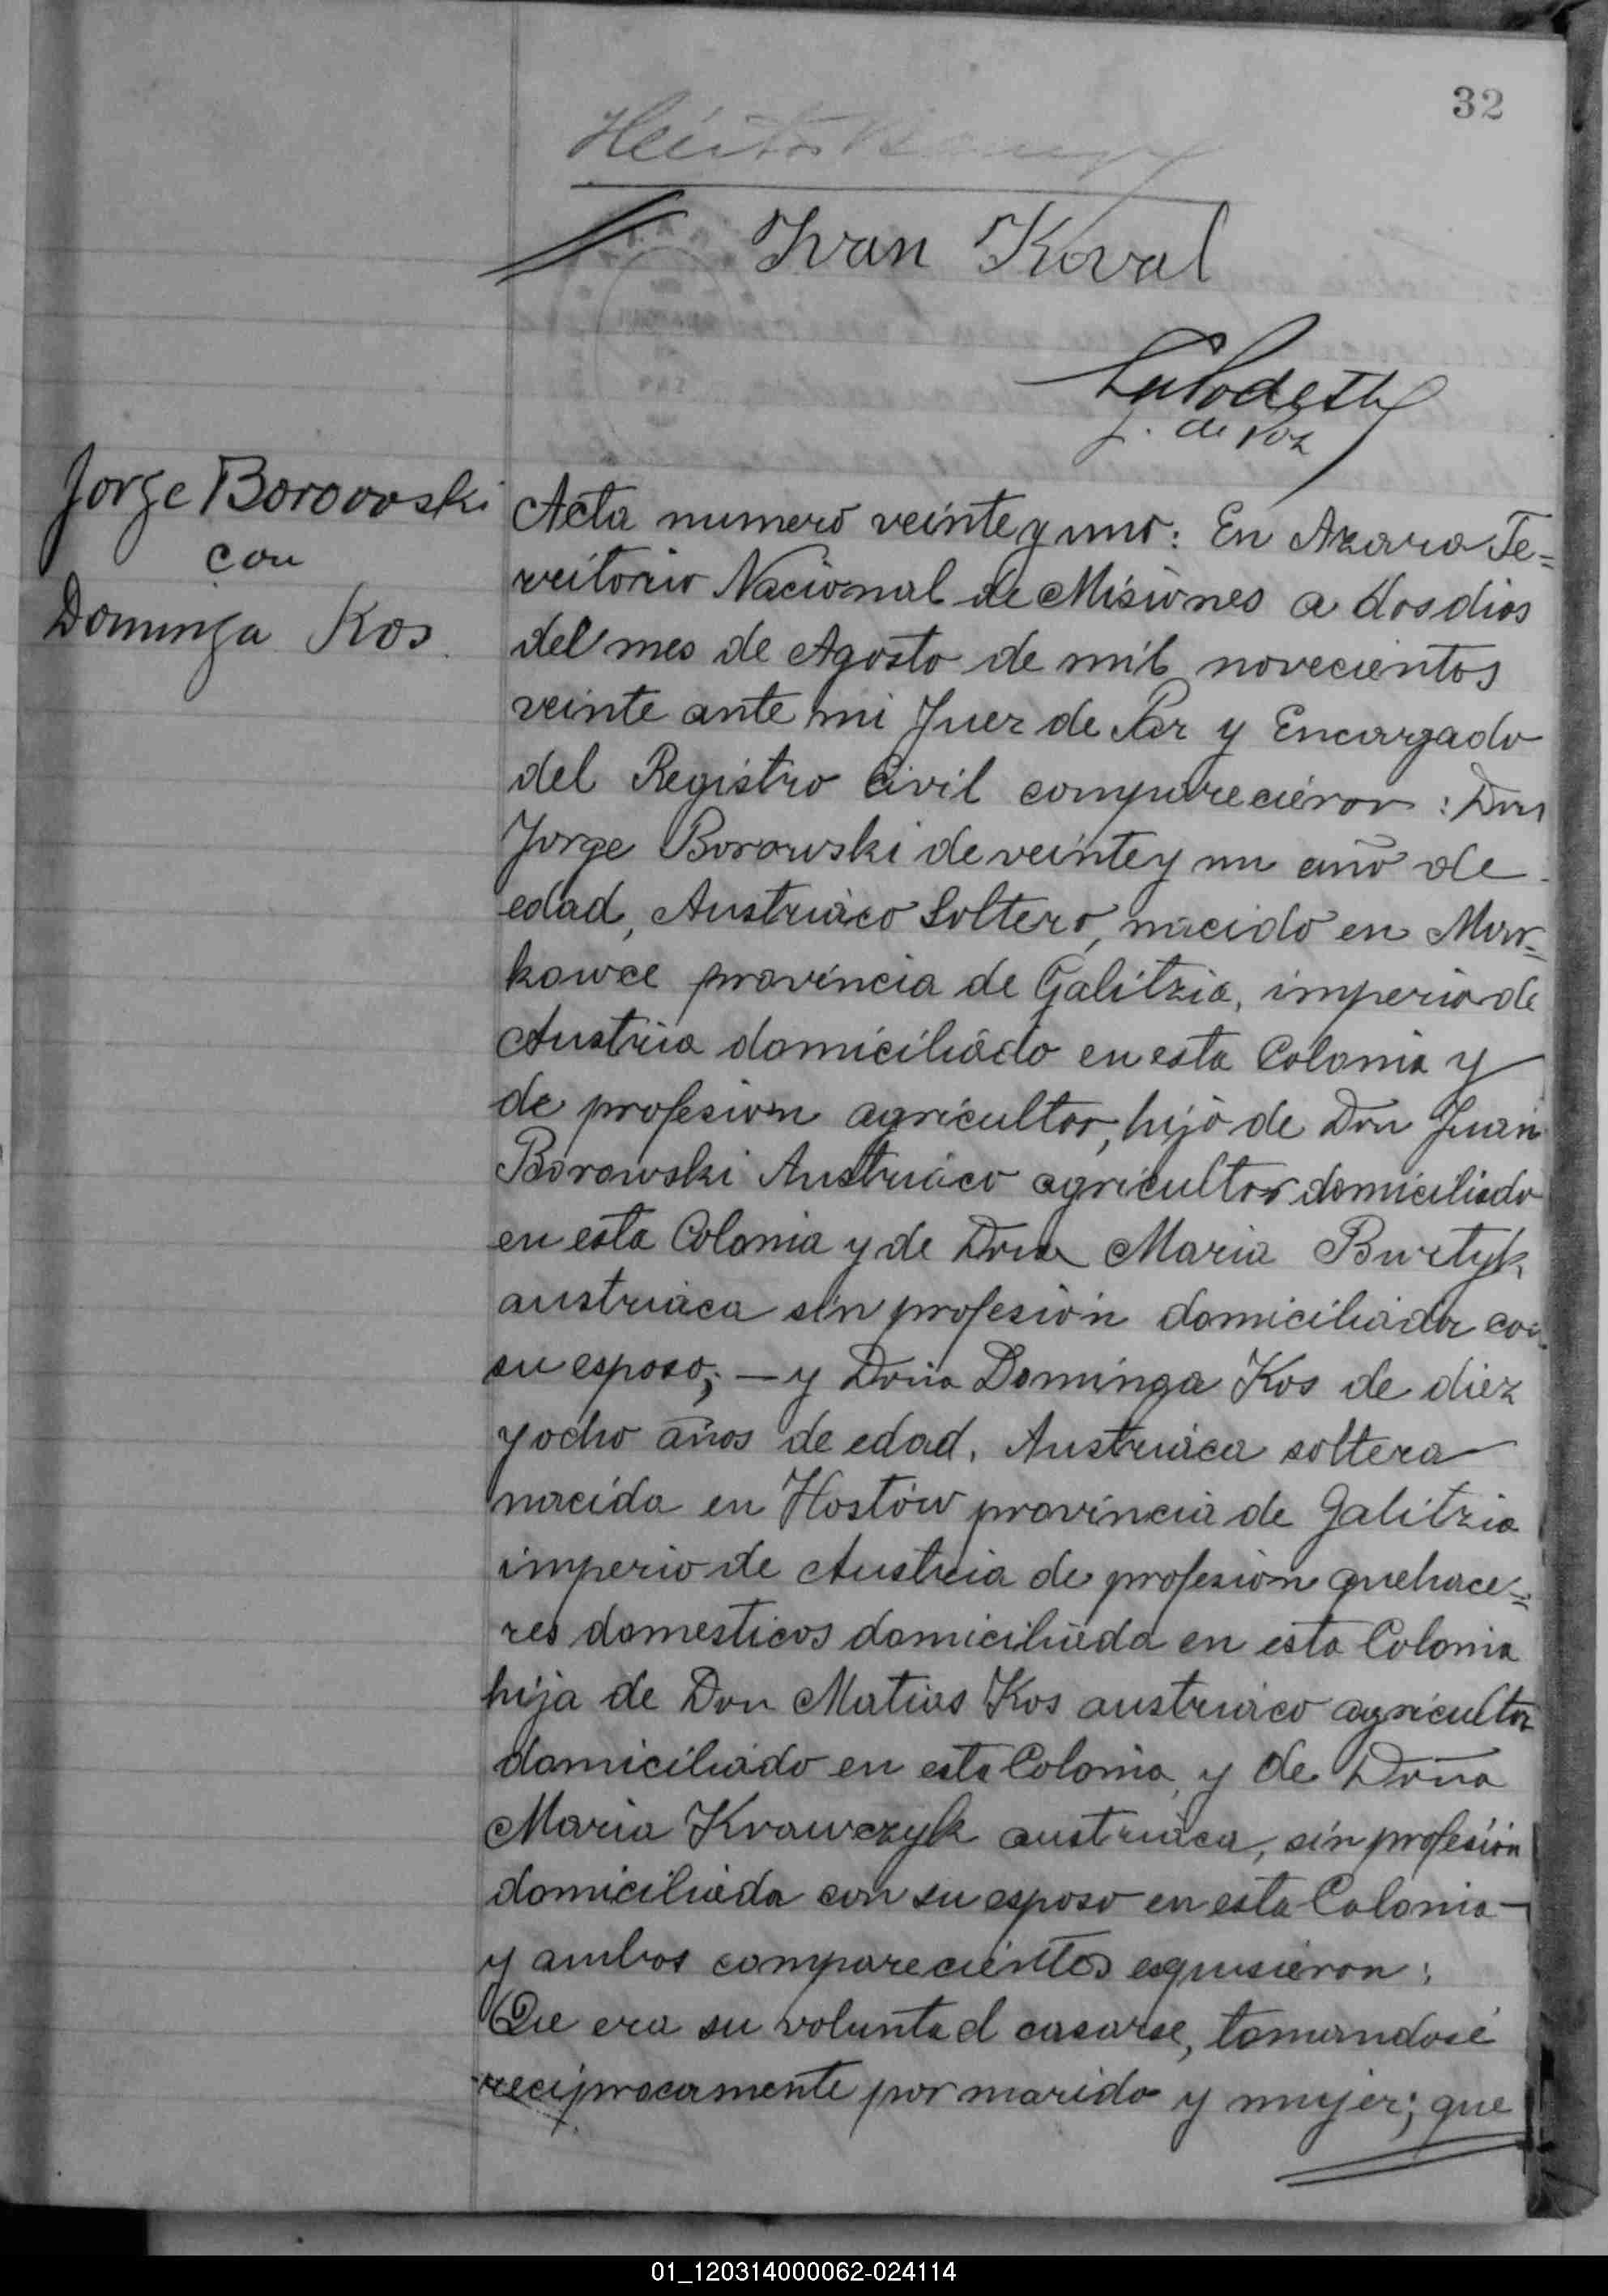 32
Ivan Koval
J. de Paz
Jorge Borowski
con
Dominga Kos.
Acta numero veinte y uno: En Azara Te=
rritorio Nacional de Misiones a dos dias
del mes de Agosto de mil novecientos
veinte ante mi Juez de Paz y Encargado
del Registro Civil comparecieron: Don
Jorge Borowski de veinte y un año de
edad, Austriaco Soltero, nacido en Mar=
kowce provincia de Galitzia, imperio de
Austria domiciliado en esta Colonia y
de profesion agricultor, hijo de Don Juan
Borowski Austriaco agricultor domiciliado
en esta Colonia y de Doña Maria
austriaca sin profesión domiciliada con
su esposo; — y Doña Dominga Kos de diez
y ocho años de edad, Austriaca soltera
nacida en Hostów provincia de Galitzia
imperio de Austria de profesion quehace=
res domesticos domiciliada en esta Colonia
hija de Don Matias Kos austriaco agricultor
domiciliado en esta Colonia, y de Doña
Maria Krawczyk austriaca, sin profesión
domiciliada con su esposo en esta Colonia —
y ambos comparecientes esquisieron:
Que era su voluntad casarse, tomandosé
reciprocamente por marido y mujer; que
01_120314000062-024114